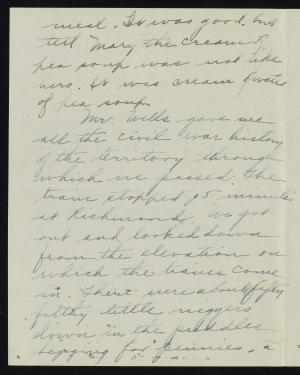 meal. It was good. but
tell Mary the cream of
pea soup was not like
hers. It was cream of water
of pea soup.
Mr. Wills gave me
all the civil war history
of the territory through
which we passed. The
train stopped 15 minutes
at Richmond. We got
out and looked down
from the elevation on
which the trains come
in. There were about fifty
filthy little niggers
down in the puddles
begging for pennies, a